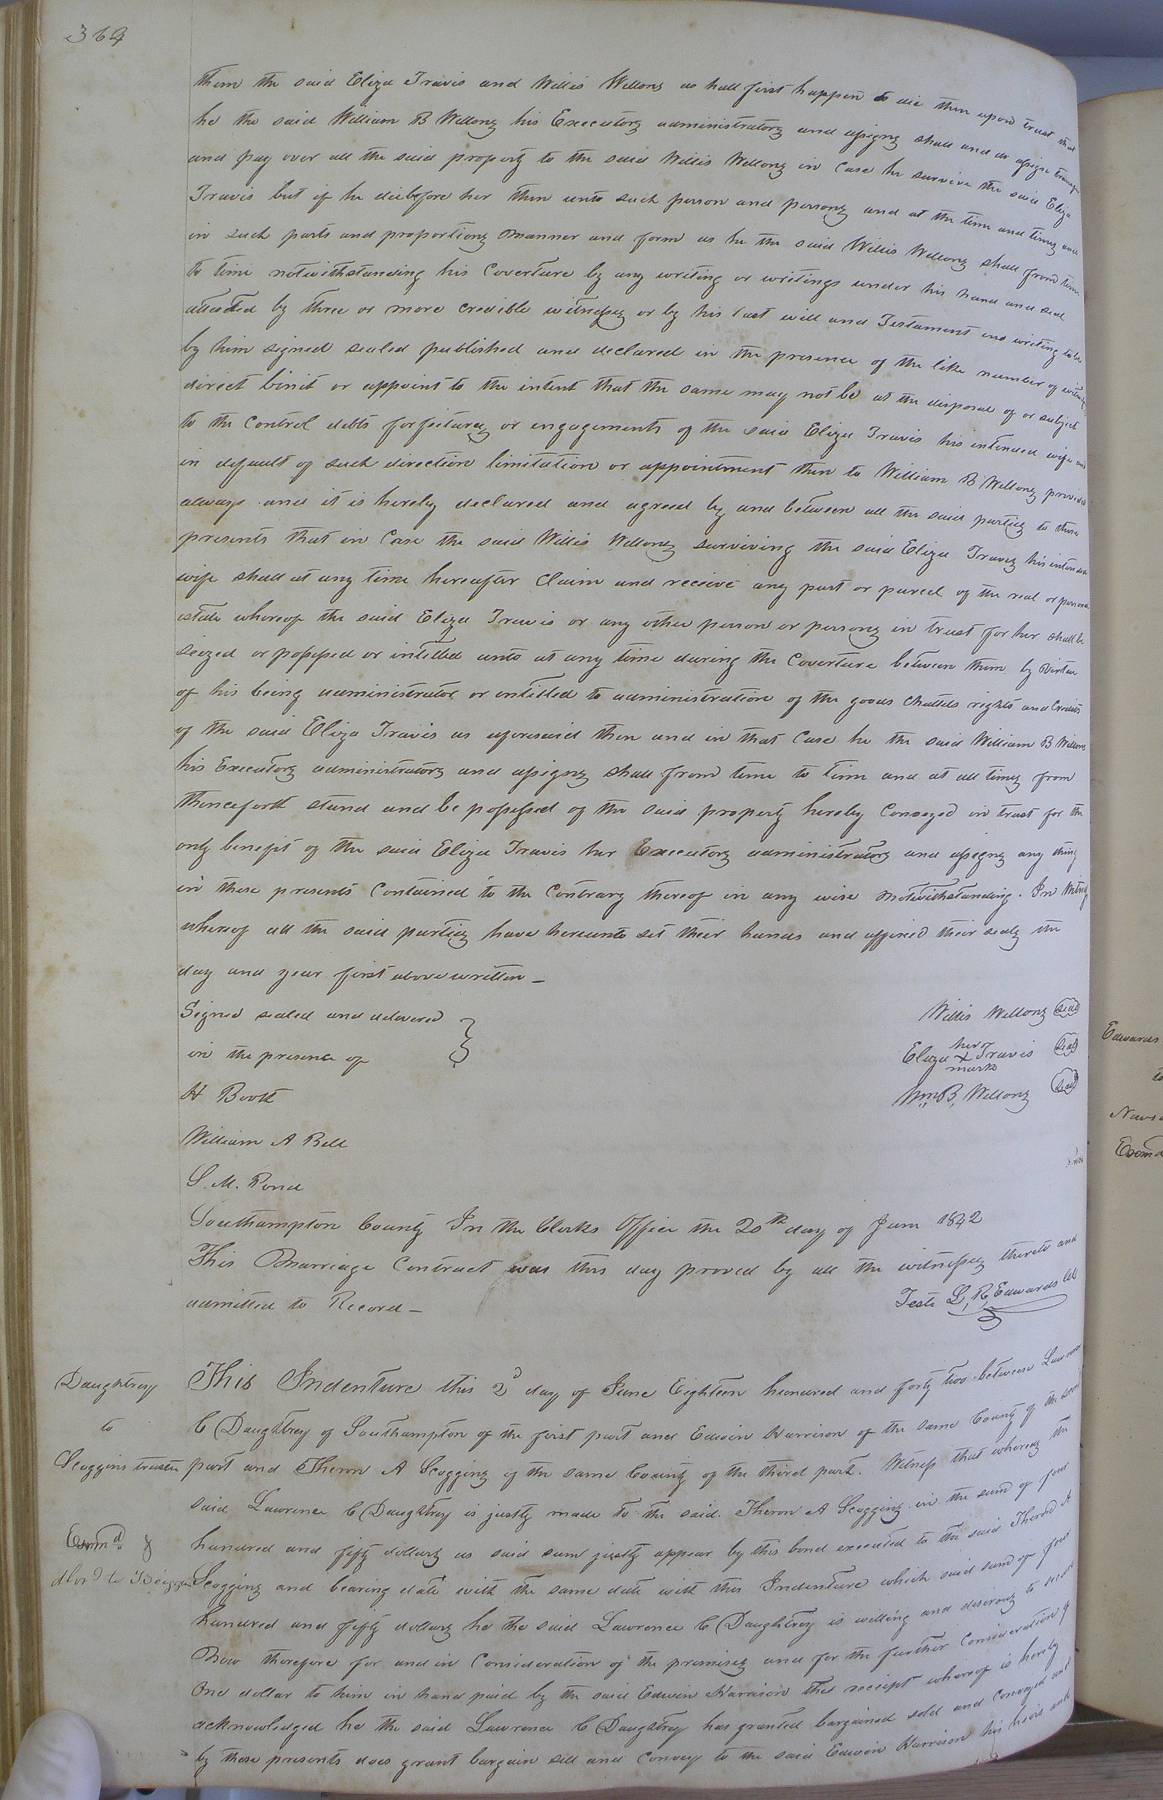 364
them the said Eliza Travis and Willis Wellons as hall first happen to die then upon trust that
he the said William B Wellons his Executors administrators and assigns shall and do assign transfer
and pay over all the said property to the said Willis Wellons in Case he survive the said Eliza
Travis but if he die before her then unto such person and persons and at the time and times and
in such parts and proportions manner and form as he the said Willis Wellons shall from time
to time notwithstanding his Coverture by any writing or writings under his hand and seal
attested by three or more credible witnesses or by his last will and Testament in writing to be
by him signed sealed published and declared in the presence of the like number of witnesses
direct limit or appoint to the intent that the same may not be at the disposal of or subject
to the Control debts forfeitures or engagements of the said Eliza Travis his intended wife and
in default of such direction limitation or appointment then to William B Wellons provided
always and it is hereby declared and agreed by and between all the said parties to these
presents that in Case the said Willis Wellons surviving the said Eliza Travis his intended
wife shall at any time hereafter Claim and receive any part or parcel of the real or personal
estate whereof the said Eliza Travis or any other person or persons in trust for her shall be
seized or possessed or intitled unto at any time during the Coverture between them by Virtue
of his being administrator or entitled to administration of the goods Chattels rights and Credits
of the said Eliza Travis as aforesaid then and in that Case he the said William B Wellons
his Executors administrators and assigns shall from time to time and at all times from
thenceforth stand and be possessed of the said property hereby Conveyed in trust for the
only benefit of the said Eliza Travis her Executors administrators and assigns any thing
in these presents Contained to the Contrary thereof in any wise notwithstanding. In Witness
whereof all the said parties have hereunto set their hands and affixed their seals the
day and year first above written –
Signed sealed and delivered
in the presence of
H Booth
William A Bell
S. M. Pond
Willis Wellons Seal
Eliza her X mark Travis Seal
Wm. B, Wellons Seal
Southampton County In the Clerks Office the 20th day of June 1842
This Marriage Contract was this day proved by all the witnesses thereto and
admitted to Record –
Teste L, R, Edwards Clk
Daughtrey
to
Scoggins trustee
Exmd. &
This Indenture this 2d day of June Eighteen hundred and forty two between Lawrence
C Daughtrey of Southampton of the first part and Edwin Harrison of the same County of the second
part and Theron A Scoggins of the same County of the third part. Witness that whereas the
said Lawrence C Daughtrey is justly made to the said Theron A Scoggins in the sum of four
hundred and fifty dollars as said sum justly appear by this bond executed to the said Theron A
Scoggins and bearing date with the same date with this Indenture which said sum of four
hundred and fifty dollars he the said Lawrence C Daughtrey is willing and desirous to secure
Now therefore for and in Consideration of the premises and for the further Consideration of
One dollar to him in hand paid by the said Edwin Harrison the receipt whereof is hereby
acknowledged he the said Lawrence C Daughtrey has granted bargained sold and Conveyed and
by these presents does grant bargain sell and Convey to the said Edwin Harrison his heirs and
Edwards
to